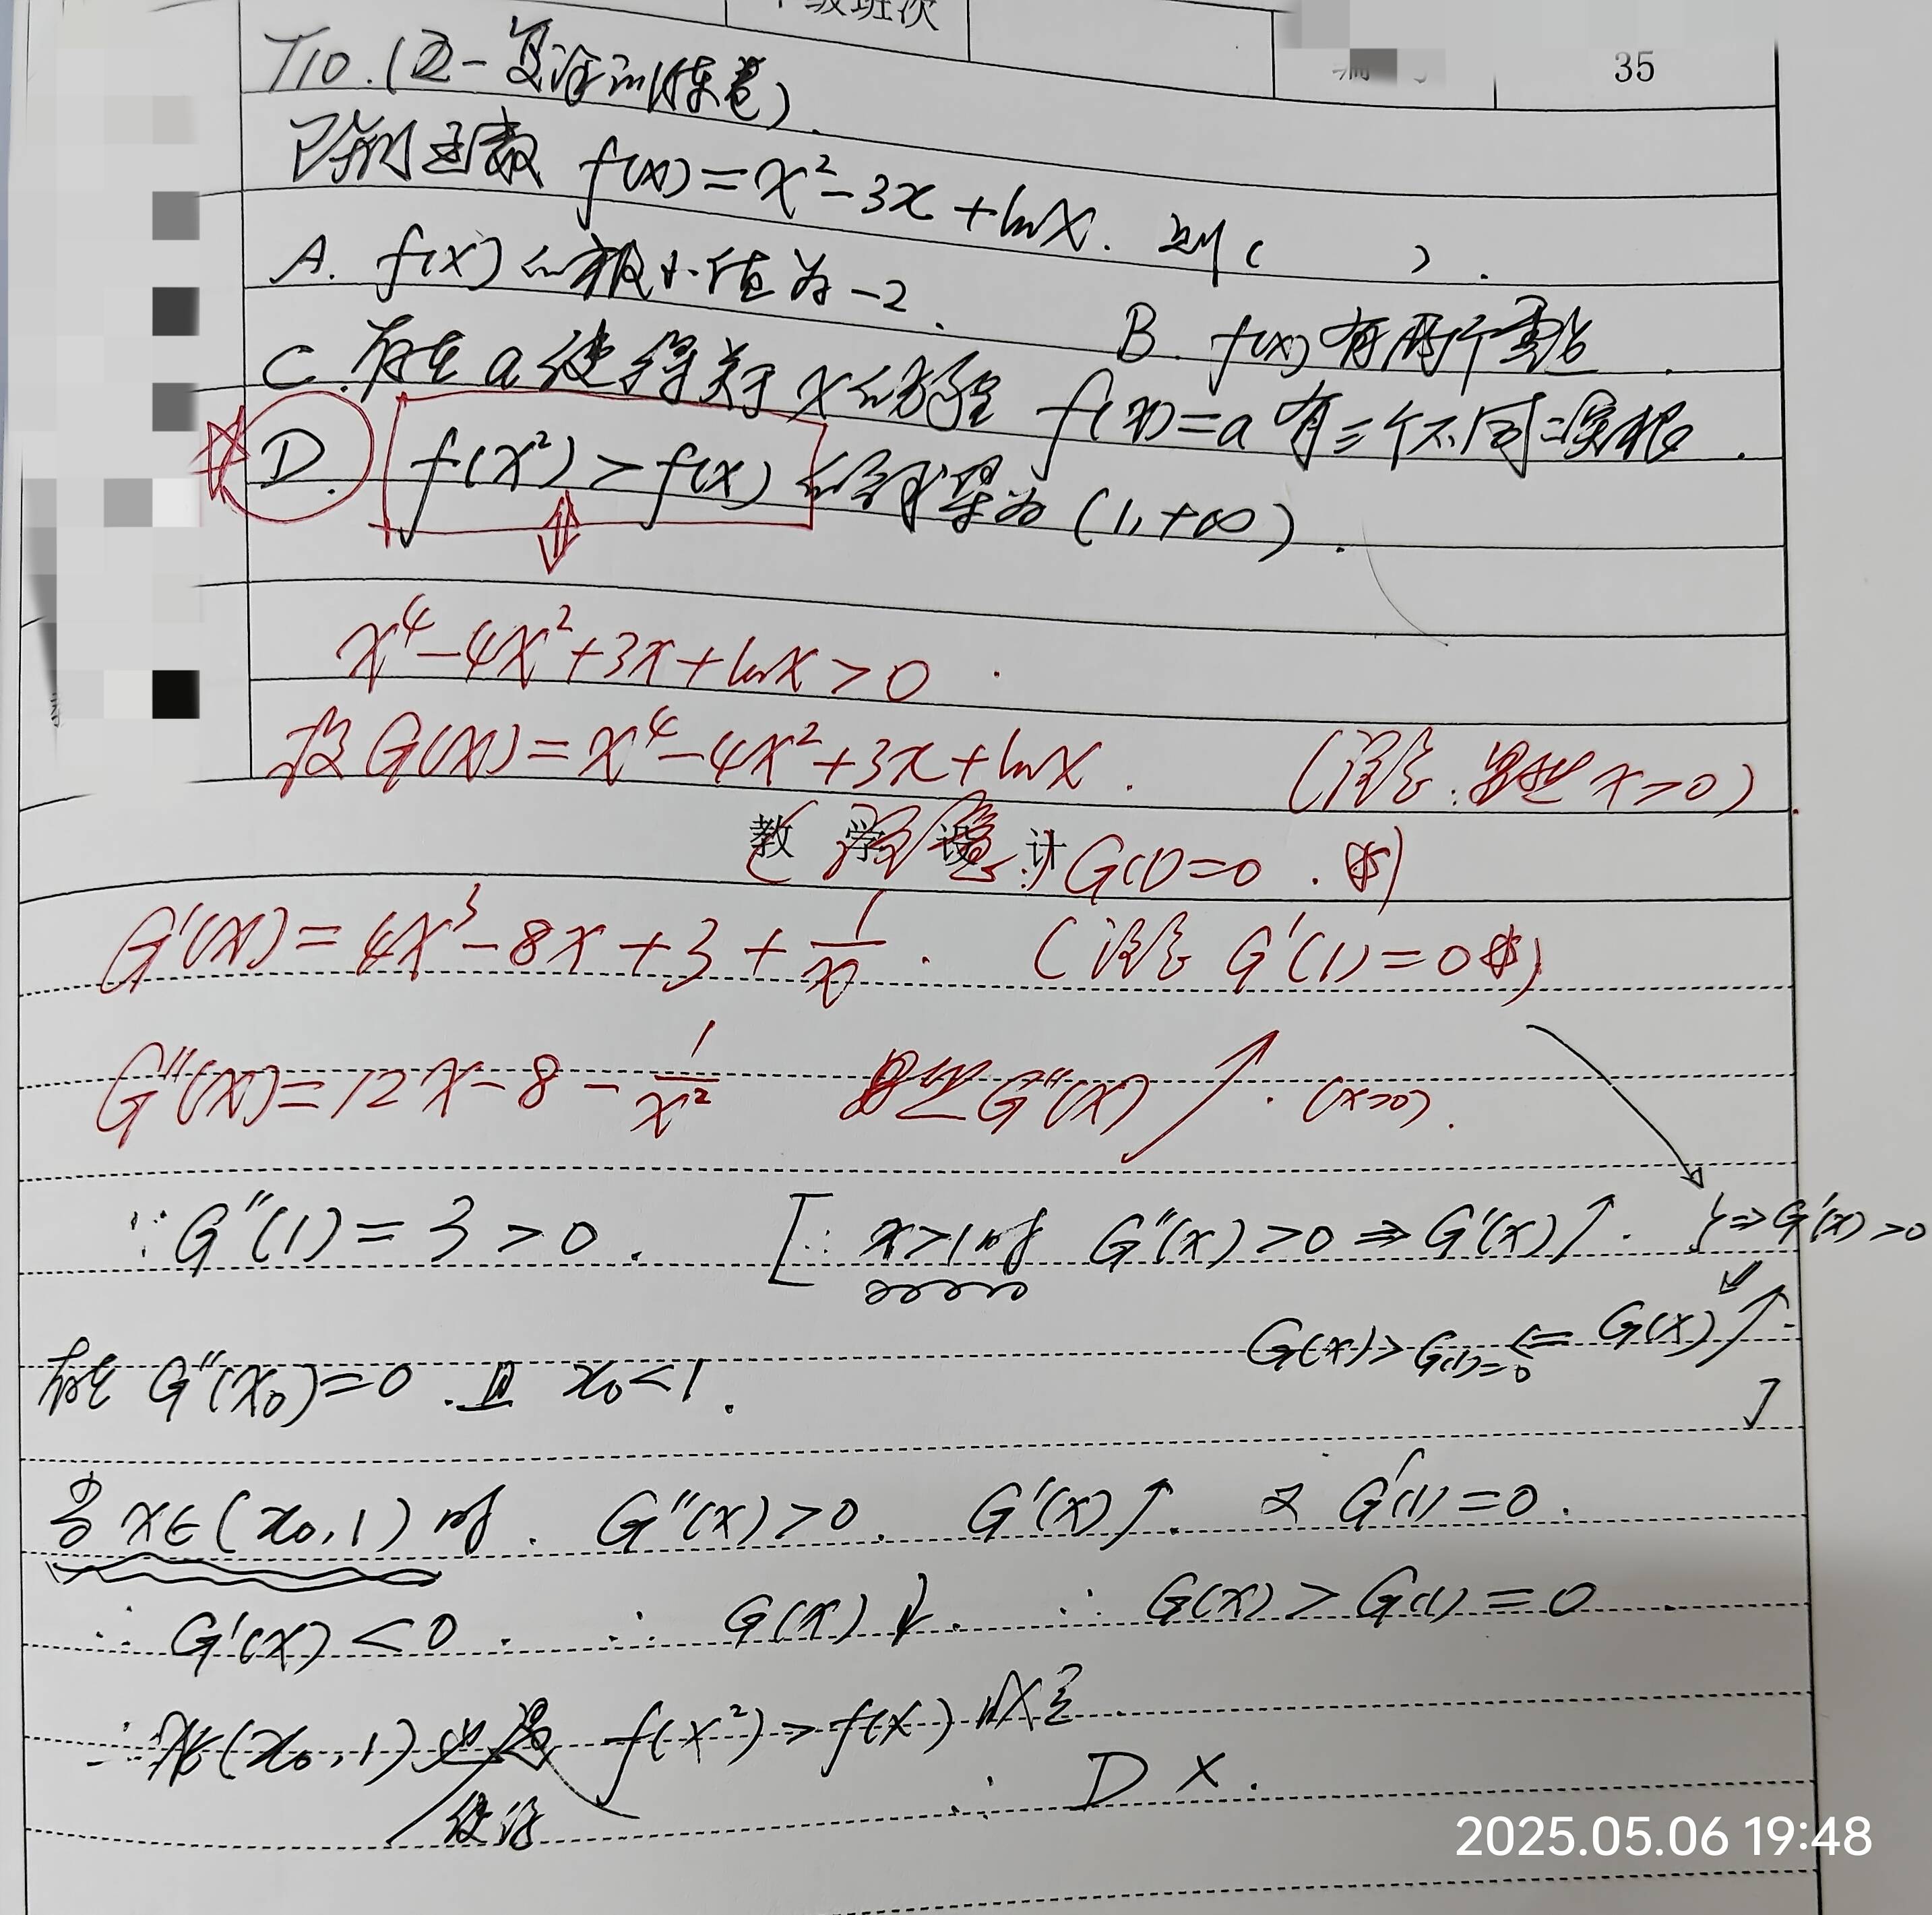 年级班次
35
T10.(五一复习训练卷).
已知函数 f(x)=x²-3x+lnx. 则( ).
A. f(x)的极小值为-2. B. f(x)有两个零点.
C. 存在a使得关于x的方程 f(x)=a有三个不同的实根.
D. f(x²)>f(x)的解集为(1,+∞).
⇕
x⁴-4x²+3x+lnx>0.
设G(x)=x⁴-4x²+3x+lnx. (注意:显然x>0).
教学设计
(注意: G(1)=0.)
G'(x)=4x³-8x+3+1/x. (注意 G'(1)=0)
G''(x)=12x-8-1/x² 显然G''(x)↗. (x>0).
∵G''(1)=3>0. [∴x>1时 G''(x)>0⇒G'(x)↑. }⇒G'(x)>0
⇙
G(x)>G(1)=0 ⇐ G(x)↗. ]
存在 G''(x₀)=0.且 x₀<1.
当x∈(x₀,1)时. G''(x)>0. G'(x)↑. 又 G'(1)=0.
∴G'(x)<0. ∴ G(x)↓. ∴ G(x)>G(1)=0.
∴在(x₀,1) f(x²)>f(x)成立.
∴ D ×.
2025.05.06 19:48